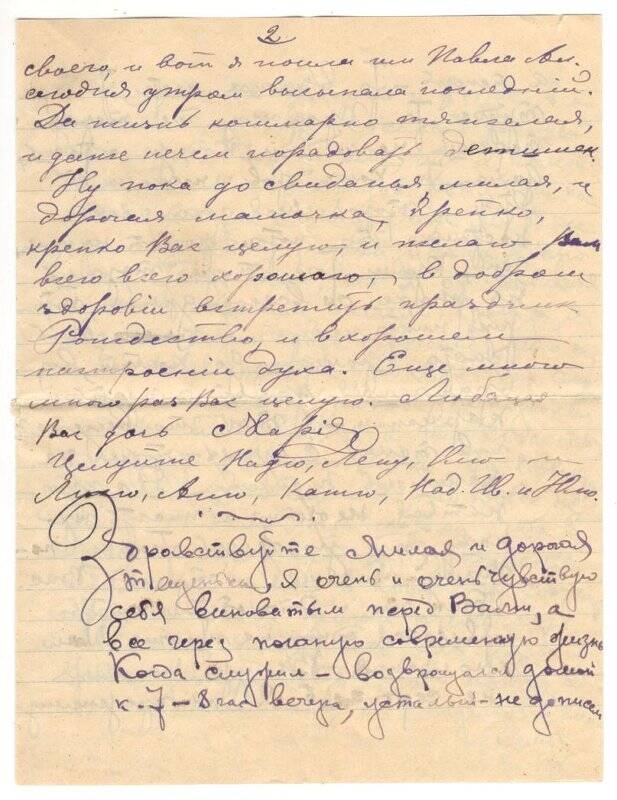 2
своего, и вот я пошла им Павла Ал.
сегодня утром высыпала последній.
Да жизнь кошмарно тяжелая,
и даже нечем порадовать детишек.
Ну пока до свиданья, милая, и
дорогая мамочка, Крепко,
крепко Вас целую, и желаю Вам
всего всего хорошаго, в добром
здоровіи встретить праздник
Рождество, и в хорошем
настроеніи духа. Еще много
много раз Вас целую. Любящая
Вас дочь Марія
Целуйте Надю, Лену,
Асю, Катю, Над. Ив. и Юлю.
Здравствуйте Милая и дорогая
тещенька, я очень и очень чувствую
себя виноватым перед Вами, а
все через поганую современную жизнь
Когда служил – возвращался домой
к 7 – 8 час вечера, усталый – не до писем